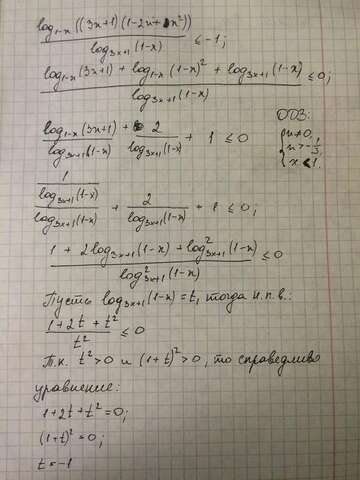 log₁₋ₓ((3x+1)(1-2x+x²)) / log₃ₓ₊₁(1-x) ≤ -1;
(log₁₋ₓ(3x+1) + log₁₋ₓ(1-x)² + log₃ₓ₊₁(1-x)) / log₃ₓ₊₁(1-x) ≤ 0;
ОДЗ:
log₁₋ₓ(3x+1) / log₃ₓ₊₁(1-x) + 2 / log₃ₓ₊₁(1-x) + 1 ≤ 0
{ x≠0,
x>-1/3,
x<1.
(1 / log₃ₓ₊₁(1-x)) / log₃ₓ₊₁(1-x) + 2 / log₃ₓ₊₁(1-x) + 1 ≤ 0;
(1 + 2log₃ₓ₊₁(1-x) + log²₃ₓ₊₁(1-x)) / log²₃ₓ₊₁(1-x) ≤ 0
Пусть log₃ₓ₊₁(1-x) = t, тогда н.р.в.:
(1+2t+t²) / t² ≤ 0
Т.к. t²>0 и (1+t)²>0, то справедливо
уравнение:
1+2t+t²=0;
(1+t)²=0;
t=-1